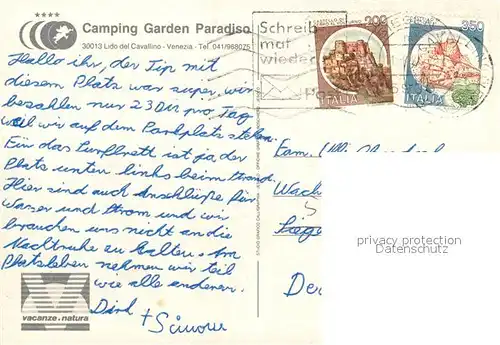 ****
Camping Garden Paradiso
30013 Lido del Cavallino - Venezia - Tel. 041/968075
Schreib
mal
wieder
200
350
ITALIA
ITALIA
Hallo ihr, der Tip mit
diesem Platz war super, wir
bezahlen nur 23 DM pro Tag
weil wir auf dem Parkplatz stehen.
Für das Surfbrett ist ja der
Platz unten links beim Strand.
Hier sind auch Anschlüße für
Wasser und Strom und wir
brauchen uns nicht an die
Nachtruhe zu halten. Am
Platzleben nehmen wir teil
wie alle anderen.
Dirk
+ Simone
Fam. Ulli
Wach
privacy protection
Datenschutz
vacanze natura